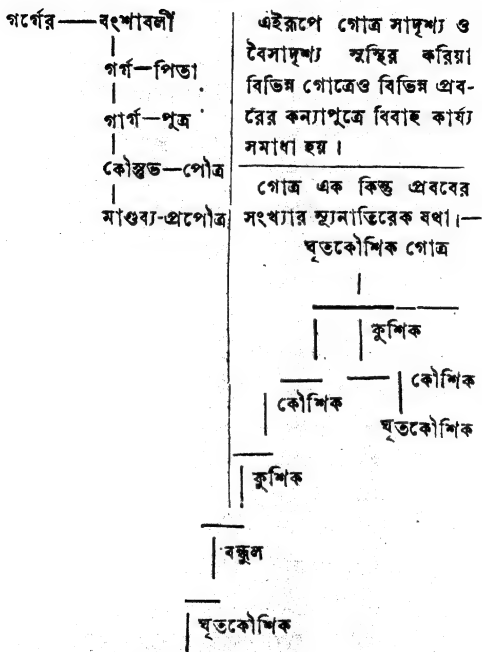 গর্গের — বংশাবলী
গর্গ—পিতা
গার্গ—পুত্র
কৌস্তুভ—পৌত্র
মাণ্ডব্য-প্রপৌত্র
এইরূপে গোত্র সাদৃশ্য ও
বৈসাদৃশ্য সুস্থির করিয়া
বিভিন্ন গোত্রেও বিভিন্ন প্রব-
রের কন্যাপুত্রে বিবাহ কার্য্য
সমাধা হয় ।
গোত্র এক কিন্তু প্রববের
সংখ্যার ন্যূনাতিরেক যথা।—
ঘৃতকৌশিক গোত্র
কুশিক
কৌশিক
কৌশিক
ঘৃতকৌশিক
কুশিক
বন্ধুল
ঘৃতকৌশিক